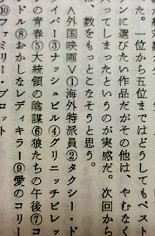 た。一位から五位まではどうしてもベスト
ンに選びたい作品だがその他は、やむなく
ってしまったというのが実感だ。次回から
数をもっとふなそうと思う。
〈外国映画Ｖ〉①海外特派員②タクシー・ド
バー③ナッシュビル④グリニッチビレッ
の青春⑤大統領の陰謀⑥狼たちの午後⑦コ
ドル⑧おかしなレディキラー⑨愛のコリー
⑩ファミリー・プロット